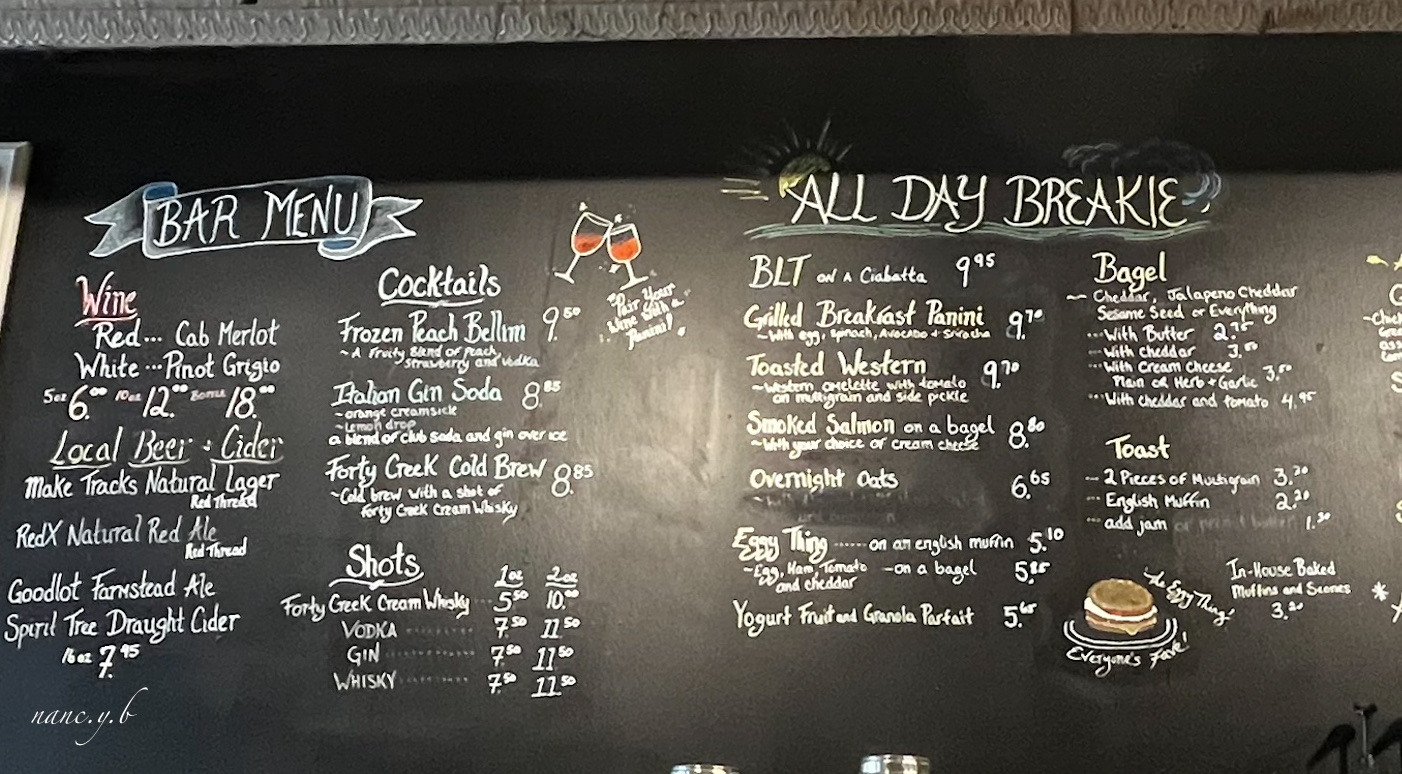 BAR MENU
Wine
Red... Cab Merlot
White...Pinot Grigio
5oz 6.00 10oz 12.00 18.00
Local Beer + Cider
Make Tracks Natural Lager
Red Thread
RedX Natural Red Ale
Red Thread
Goodlot Farmstead Ale
Spirit Tree Draught Cider
16oz 7.95
Cocktails
Frozen Peach Bellini 9.50
~A Fruity Blend of Peach,
Strawberry and Vodka
Italian Gin Soda 8.85
~orange creamsicle
~Lemon drop
a blend of club soda and gin over ice
Forty Creek Cold Brew 8.85
~Cold brew with a shot of
Forty Creek Cream Whisky
Shots
1oz 2oz
Forty Creek Cream Whisky 5.50 10.00
VODKA ......... 7.50 11.50
GIN ............ 7.50 11.50
WHISKY ......... 7.50 11.50
Pair Your
Wine with a
Panini!
ALL DAY BREAKIE
BLT on a Ciabatta 9.95
Grilled Breakfast Panini 9.70
~With egg, Spinach, Avocado + Sriracha
Toasted Western 9.70
~Western omelette with tomato
on multigrain and side pickle
Smoked Salmon on a bagel 8.80
~With your choice of cream cheese
Overnight Oats 6.65
Eggy Thing ...... on an english muffin 5.10
~Egg, Ham, Tomato -on a bagel 5.85
and cheddar
Yogurt Fruit and Granola Parfait 5.65
Bagel
~ Cheddar, Jalapeno Cheddar
Sesame Seed or Everything
...With Butter 2.75
...With cheddar 3.50
...With Cream Cheese
Plain or Herb + Garlic 3.50
...With cheddar and tomato 4.95
Toast
...2 Pieces of Multigrain 3.20
...English Muffin 2.20
...add jam
The Eggy Thing!
Everyone's Fave!
In-House Baked
Muffins and Scones
3.20
nanc.y.b